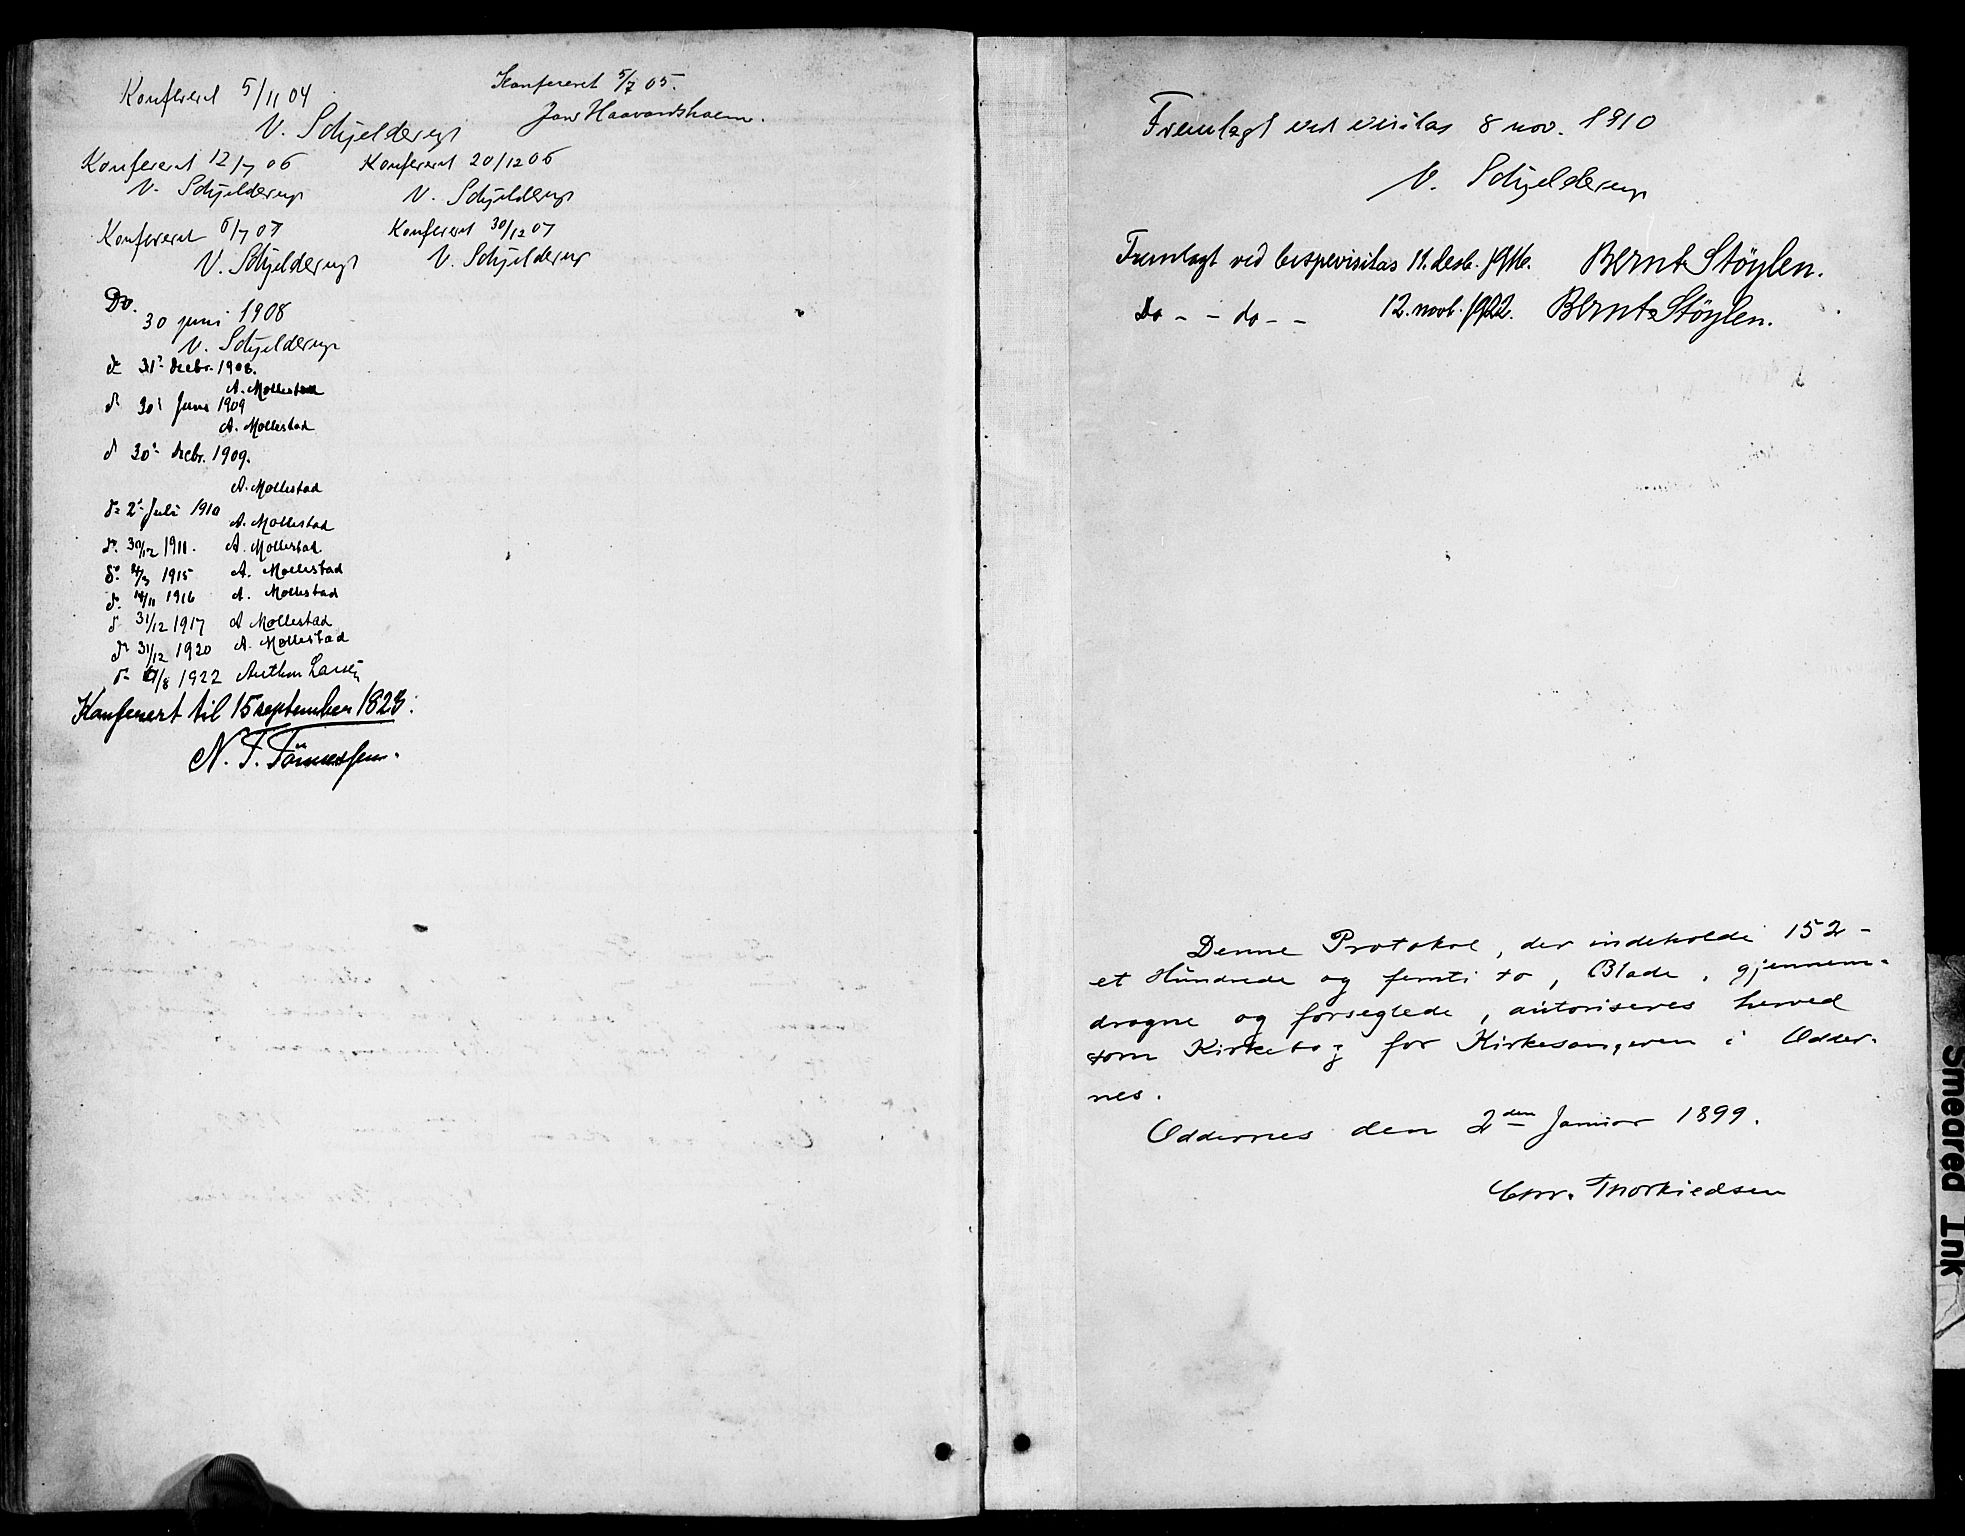 Konfereret 5/11 04
V. Schjelderup
Konfereret 5/7 05.
Jens Haavardsholm.
Konfereret 12/7 06
V. Schjelderup
Konfereret 20/12 06
V. Schjelderup
Konfereret 6/7 07
V. Schjelderup
Konfereret 30/12 07
V. Schjelderup
Do.
30 juni 1908
V. Schjelderup
do 31' decbr. 1908.
A. Mollestad
do 30' Juni 1909
A. Mollestad
do 30' decbr. 1909.
A. Mollestad
do 2' Juli 1910
A. Mollestad
do. 30/12 1911. A. Mollestad
do. 1915 A. Mollestad
do. 14/11 1916 A. Mollestad
do 31/12 1917 A Mollestad
do 31/12 1920 A. Mollestad
do /8 1922 Anthon Larsen
Konferert til 15 september 1823.
N. T. Tönnessen.
Fremlagt ved visitas 8 nov. 1910
V. Schjelderup
Fremlagt ved bispevisitas 11. desb. 1916. Bernt Støylen.
Do - - do - - 12. novb. 1922. Bernt Støylen.
Denne Protokol, der indeholde 152 -
et Hundrede og femti to, Blade, gjennem-
dragne og forseglede, autoriseres herved
som Kirkebog for Kirkesangeren i Odder-
nes.
Oddernes den 2den Januar 1899.
Chr. Thorkildsen
Smeared Ink